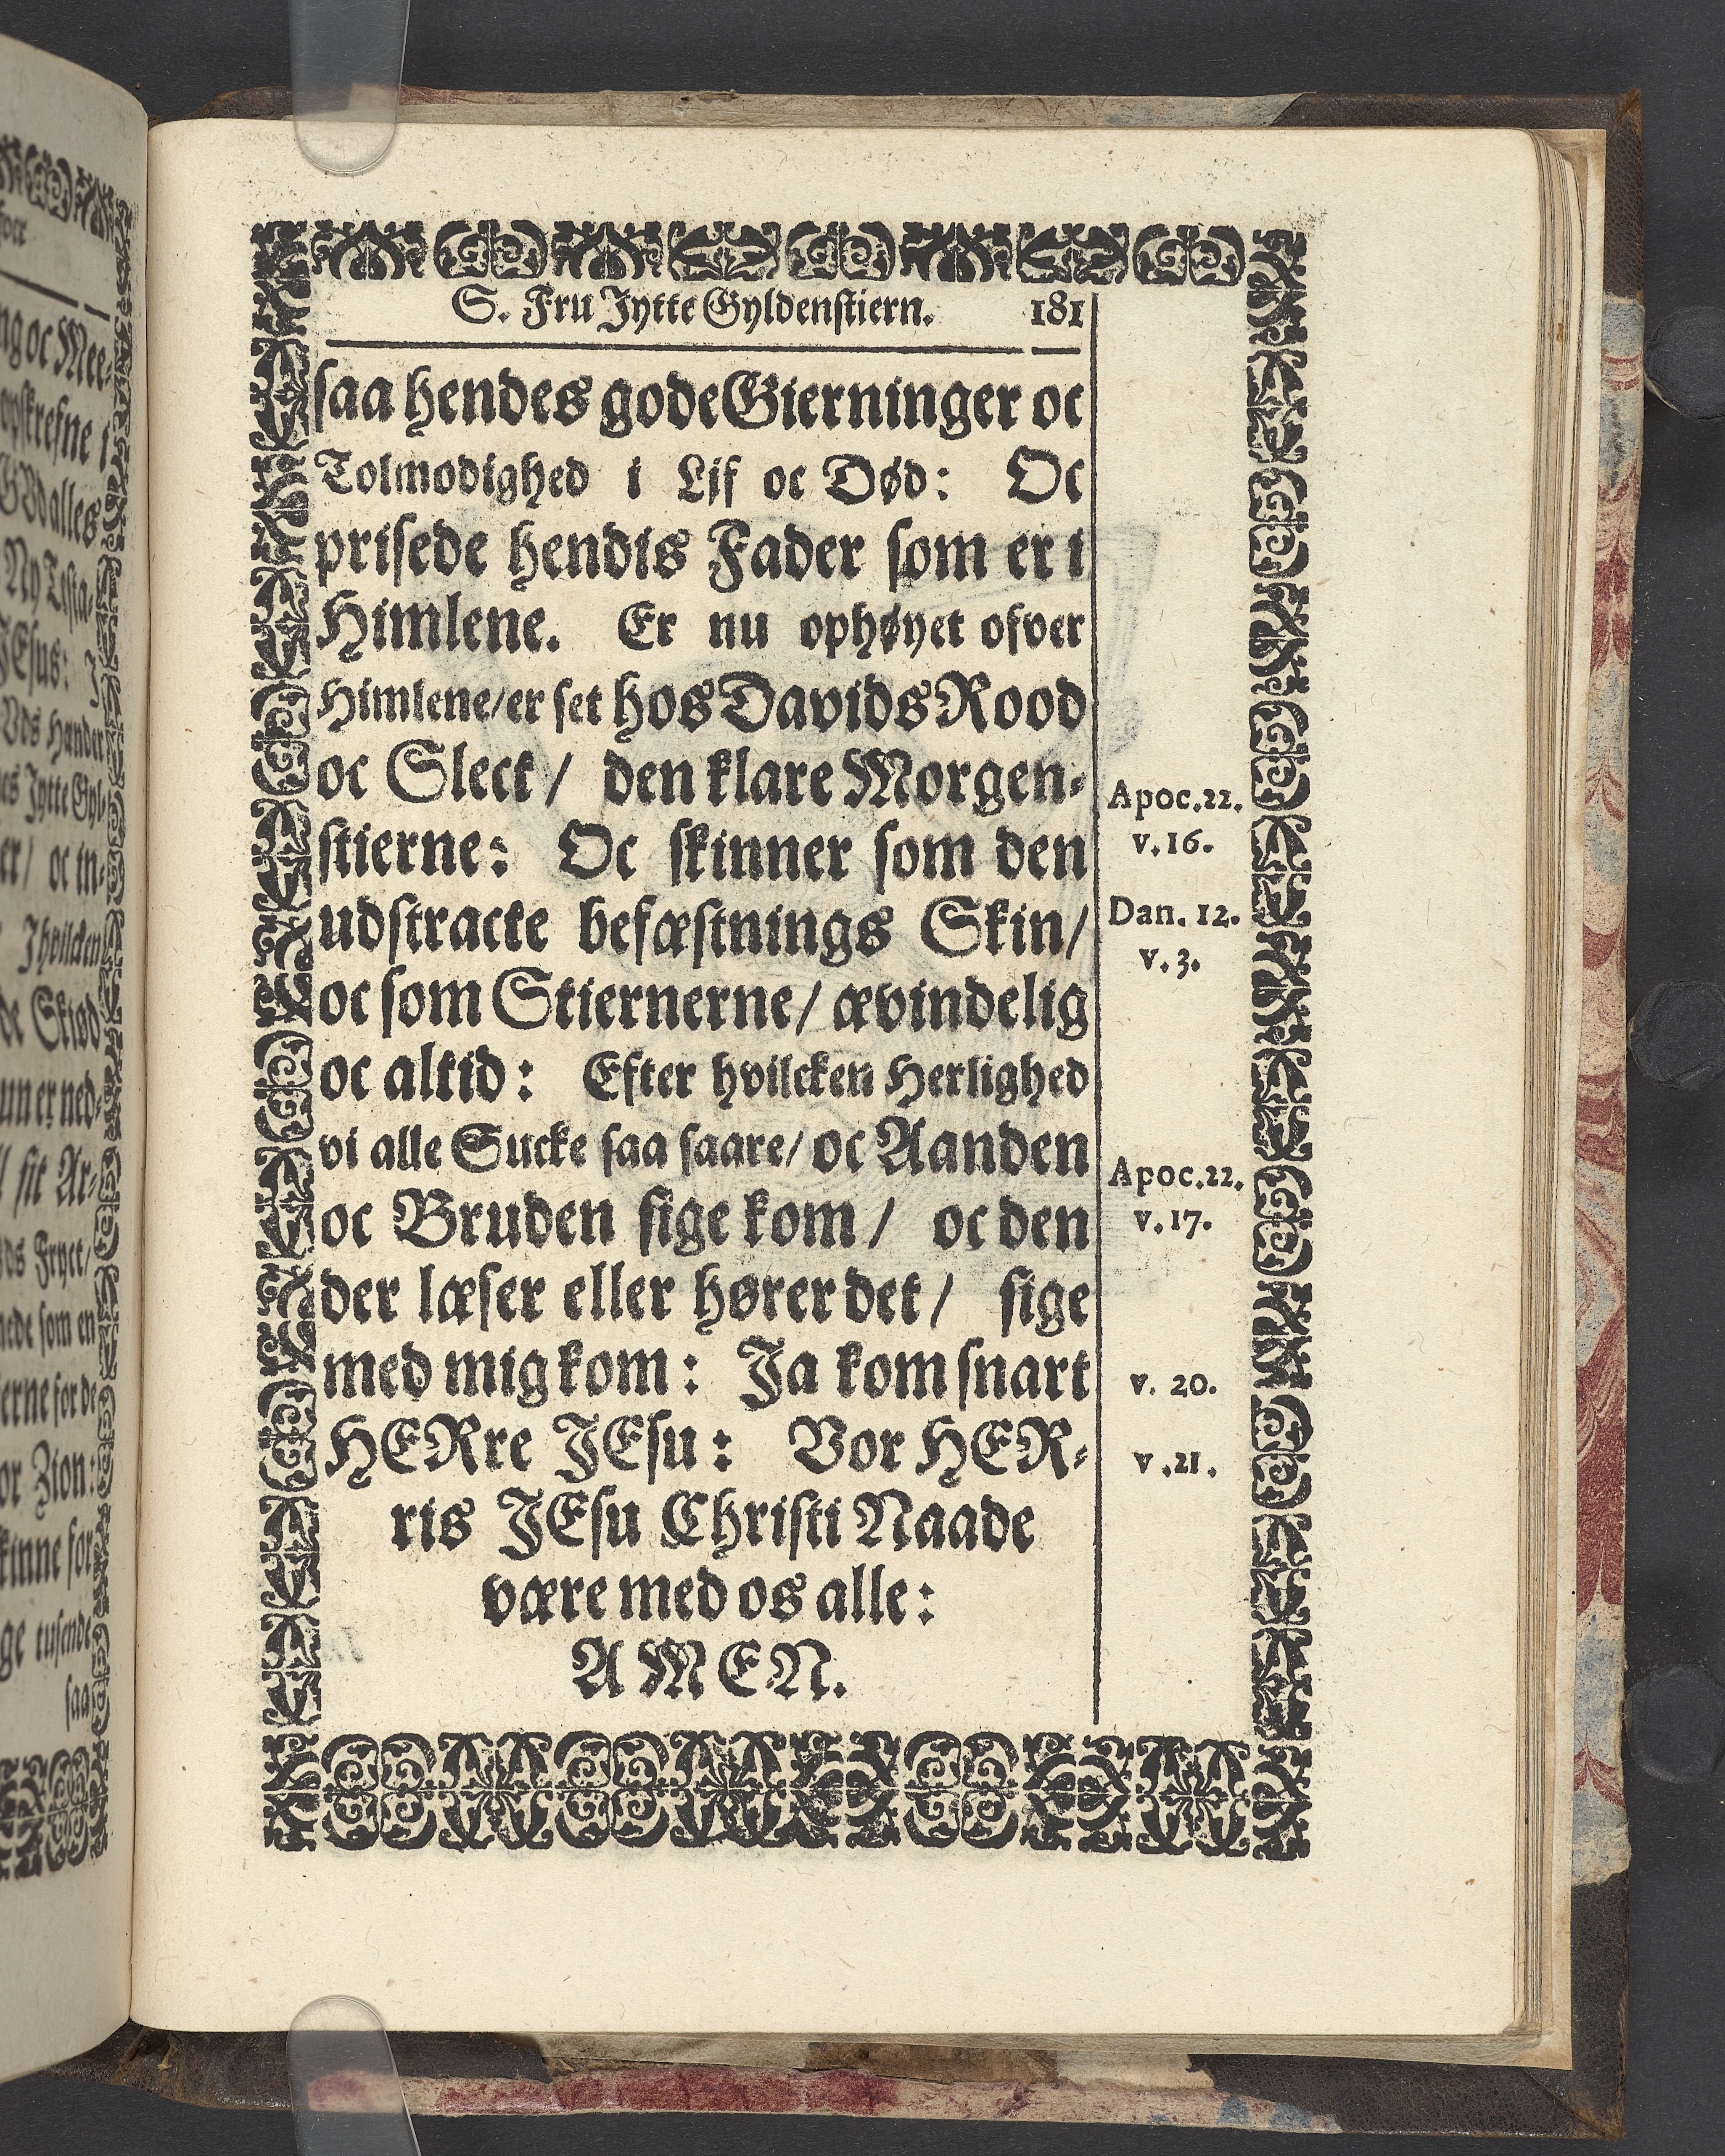 S. Fru Jytte Gyldenstiern. 181
saa hendes gode Gierninger oc
Tolmodighed i Lif oc Død: Oc
prisede hendis Fader som er i
Himlene. Er nu ophøyet ofver
Himlene/er set hos Davids Rood
oc Slect / den klare Morgen-
stierne: Oc skinner som den
udstracte befæstnings Skin/
oc som Stiernerne/ ævindelig
oc altid: Efter hvilcken Herlighed
vi alle Sucke saa saare/ oc Aanden
oc Bruden sige kom / oc den
der læser eller hører det / sige
med mig kom: Ja kom snart
HERre JEsu: Vor HER-
ris JEsu Christi Naade
være med os alle:
AMEN.
Apoc.22.
v.16.
Dan. 12.
v.3.
Apoc.22.
v.17.
v. 20.
v.21.